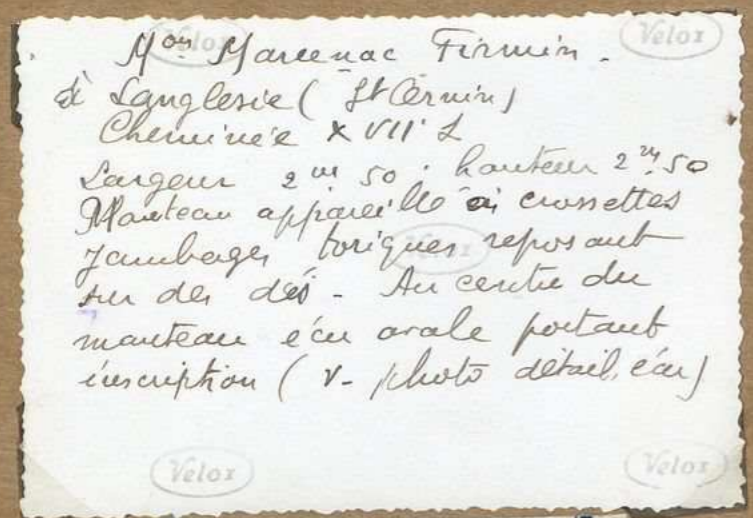 Mon Marcenac Firmin.
à Langlesie (St Cernin)
Cheminée XVII S
Largeur 2m 50. hauteur 2m.50
Manteau appareillé à crossettes
Jambages toriques reposant
sur des dés - Au centre du
manteau écu ovale portant
inscription (v- photo détail, écu)
Velox
Velox
Velox
Velox
Velox